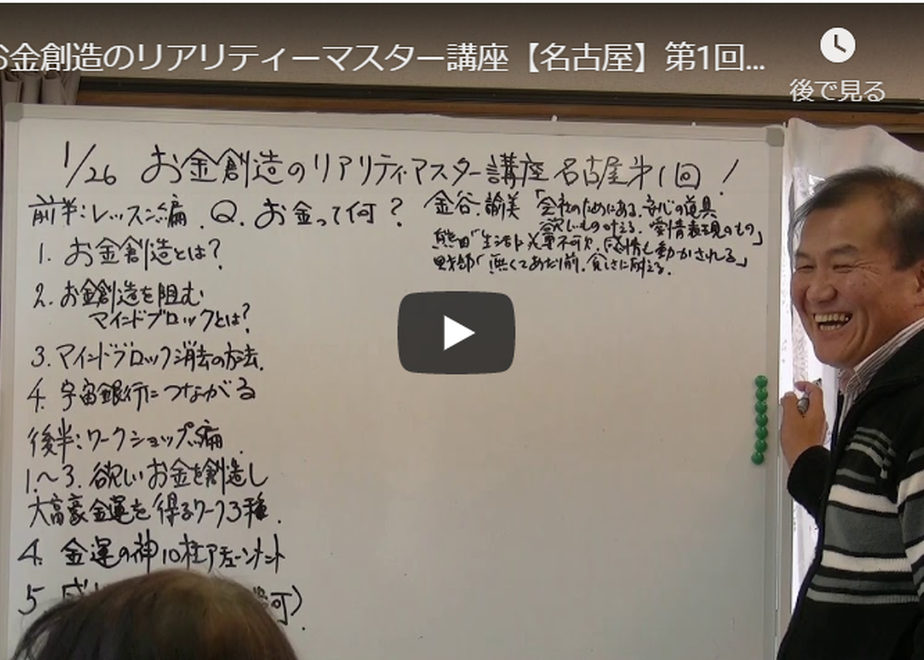 お金創造のリアリティーマスター講座【名古屋】第1回...
後で見る
1/26 お金創造のリアリティマスター講座 名古屋第1回!
前半:レッスン編. Q. お金って何?
金谷.諭美「会社のためにある.安心の道具
欲しいもの叶える.愛情表現のもの」
熊田「生活に必要不可欠.感情も動かされる」
「無くてあたり前.貧しさに耐える.
1. お金創造とは?
2. お金創造を阻む
マインドブロックとは?
3. マインドブロック消去の方法.
4. 宇宙銀行につながる
後半:ワークショップ編
1.~3. 欲しいお金を創造し
大富豪金運を得るワーク3種.
4. 金運の神10柱アチューンメント
5
可)